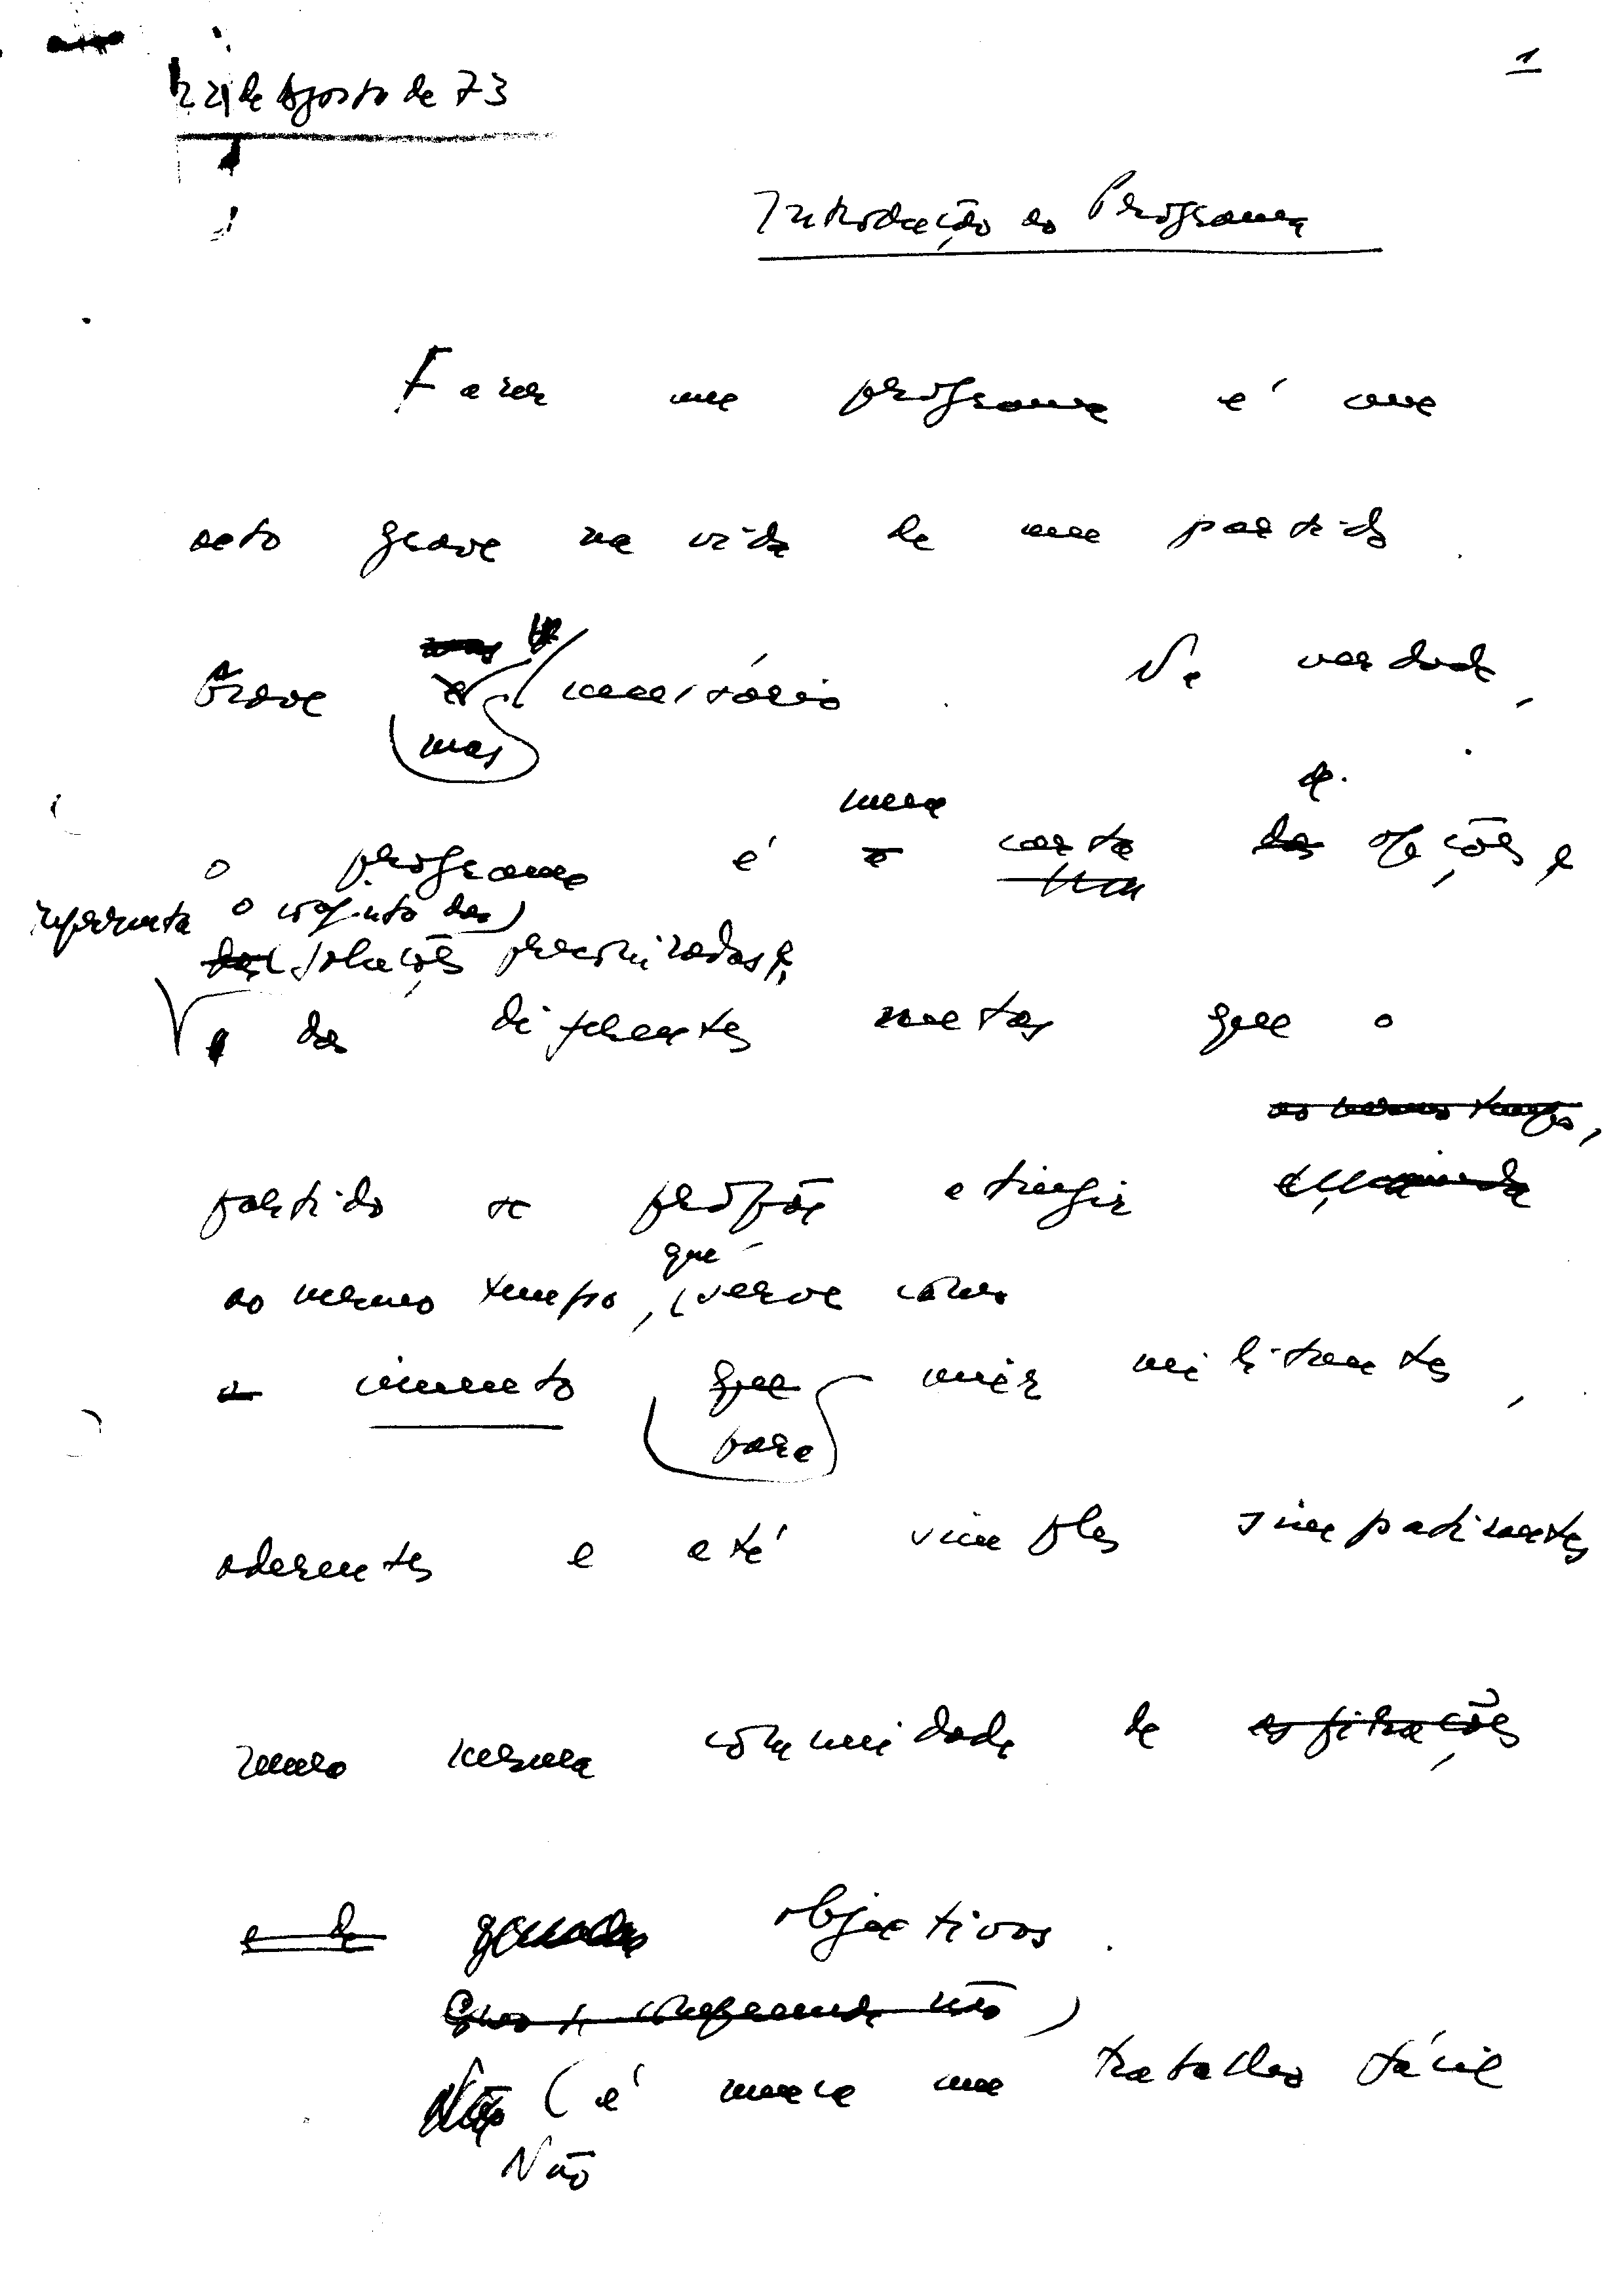 1
22 de Agosto de 73
Introdução ao Programa
Fazer um programa é um
acto grave na vida de um partido.
Grave mas necessário. Na verdade,
uma de
o programa é a carta das opções e
representa o conjunto das
das soluções preconizadas e
e das diferentes metas que o
ao mesmo tempo,
partido se propõe atingir
que
ao mesmo tempo, serve como
o cimento que unir militantes,
para
aderentes e até simples simpatizantes
numa mesma comunidade de aspirações
e de objectivos.
não
Não é nunca um trabalho fácil
Não